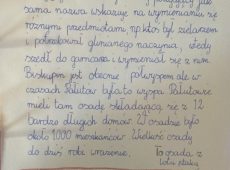 sama nazwa wskazuje na wymienianiu się
różnymi przedmiotami np. ktoś był zielarzem
i potrzebował glinianego naczynia, wtedy
szedł do garncarza i wymieniał się z nim
Biskupin jest obecnie półwyspem ale w
czasach Palutów była to wyspa Palutowie
mieli tam osadę składającą się z 12
bardzo długich domów. W osadzie było
około 1000 mieszkańców. Wielkość osady
do dziś robi wrażenie. To osada z
lotu ptaka